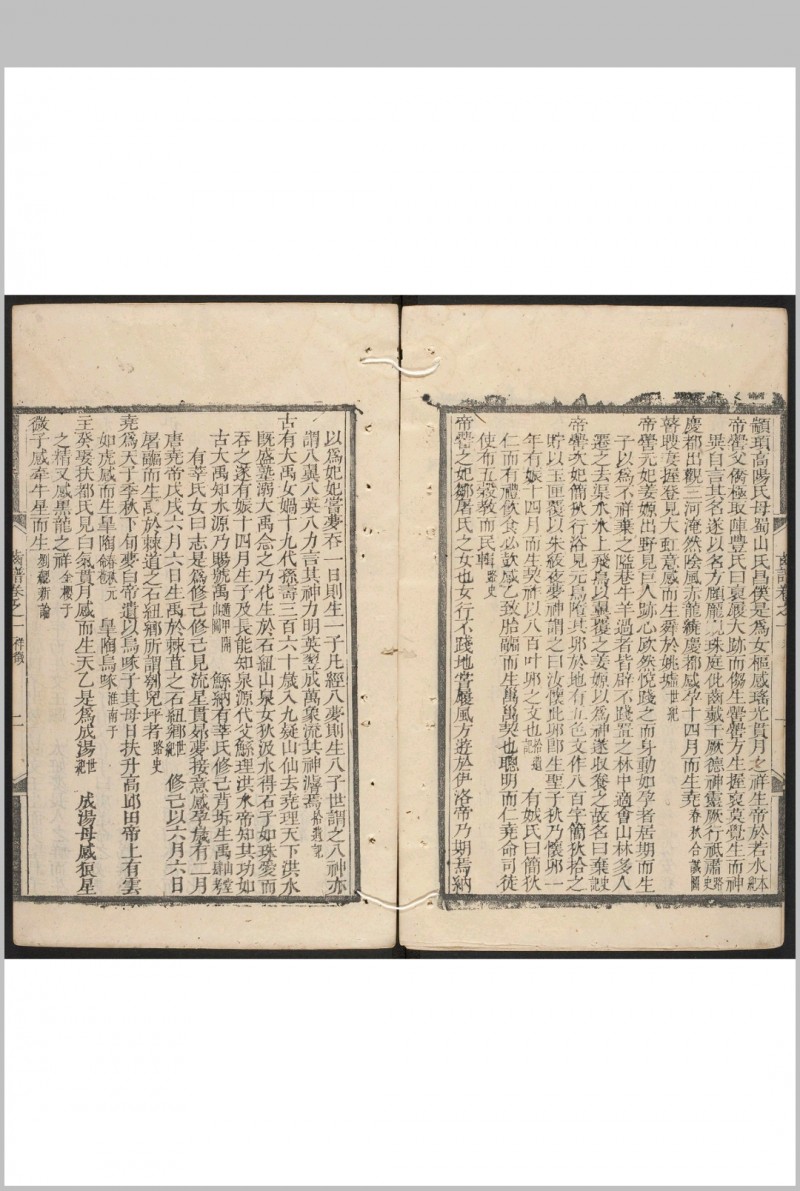 顓頊高陽氏母蜀山氏昌僕是爲女樞感瑤光貫月之祥生帝於若水本紀
帝嚳父僑極取陣豐氏曰裒履大跡而偒生嚳嚳方生握裒莫覺生而神
異自言其名遂以名方頤龎珠庭仳齒戴干厥德神靈厥行祗肅路史
慶都出觀三河淹然陰風赤龍繞慶都感孕十四月而生堯春秋合誠圖
瞽瞍妻握登見大虹意感而生舜於姚墟世紀
帝嚳元妃姜嫄出野見巨人跡心欣然悅踐之而身動如孕者居期而生
子以爲不祥棄之隘巷牛羊過者皆辟不踐置之林中適會山林多人
遷之去渠氷氷上飛鳥以翼覆之姜嫄以爲神遂收養之故名曰棄史記
帝嚳次妃簡狄行浴見元鳥墮其卵於地有五色文作八百字簡狄拾之
貯以玉匣覆以朱紱夜夢神謂之曰汝懷此卵卽生聖子狄乃懷卵一
年有娠十四月而生契祚以八百叶卵之文也拾遺記 有娀氏曰簡狄
仁而有禮佽食必歆感乙致胎疈而生禼禼契也聰明而仁堯命司徒
使布五敎敎而民輯路史
帝嚳之妃鄒屠氏之女也女行不踐地嘗履風方遊於伊洛帝乃期焉納
以爲妃妃嘗夢吞一日則生一子凡經八夢則生八子世謂之八神亦
謂八翼八英八力言其神力明英翌成萬象流其神濬焉拾遺記
古有大禹女媧十九代孫壽三百六十歲入九嶷山仙去堯理天下洪水
旣盛墊溺大禹念之乃化生於石紐山泉女狄汲水得石子如珠愛而
吞之遂有娠十四月生子及長能知泉源代父鯀理洪水帝知其功如
古大禹知水源乃賜號禹遁甲開山圖 鯀納有莘氏修己背坼生禹山堂肆考
有莘氏女曰志是爲修己修己見流星貫昴夢接意感孕歲有二月
唐堯帝戊戌六月六日生禹於棘苴之石紐鄕世紀 修己以六月六日
屠疈而生禹於棘道之石紐鄕所謂刳兒坪者路史
堯爲天子季秋下旬夢白帝遺以烏喙子其母曰扶升高邱田帝上有雲
如虎感而生皋陶春秋元命苞 皋陶烏喙淮南子
主癸娶扶都氏見白氣貫月感而生天乙是爲成湯世紀 成湯母感狼星
之精又感黑龍之祥金樓子
微子感牽牛星而生劉勰新論
齒譜卷之一
齒譜卷之一 祥徵 二